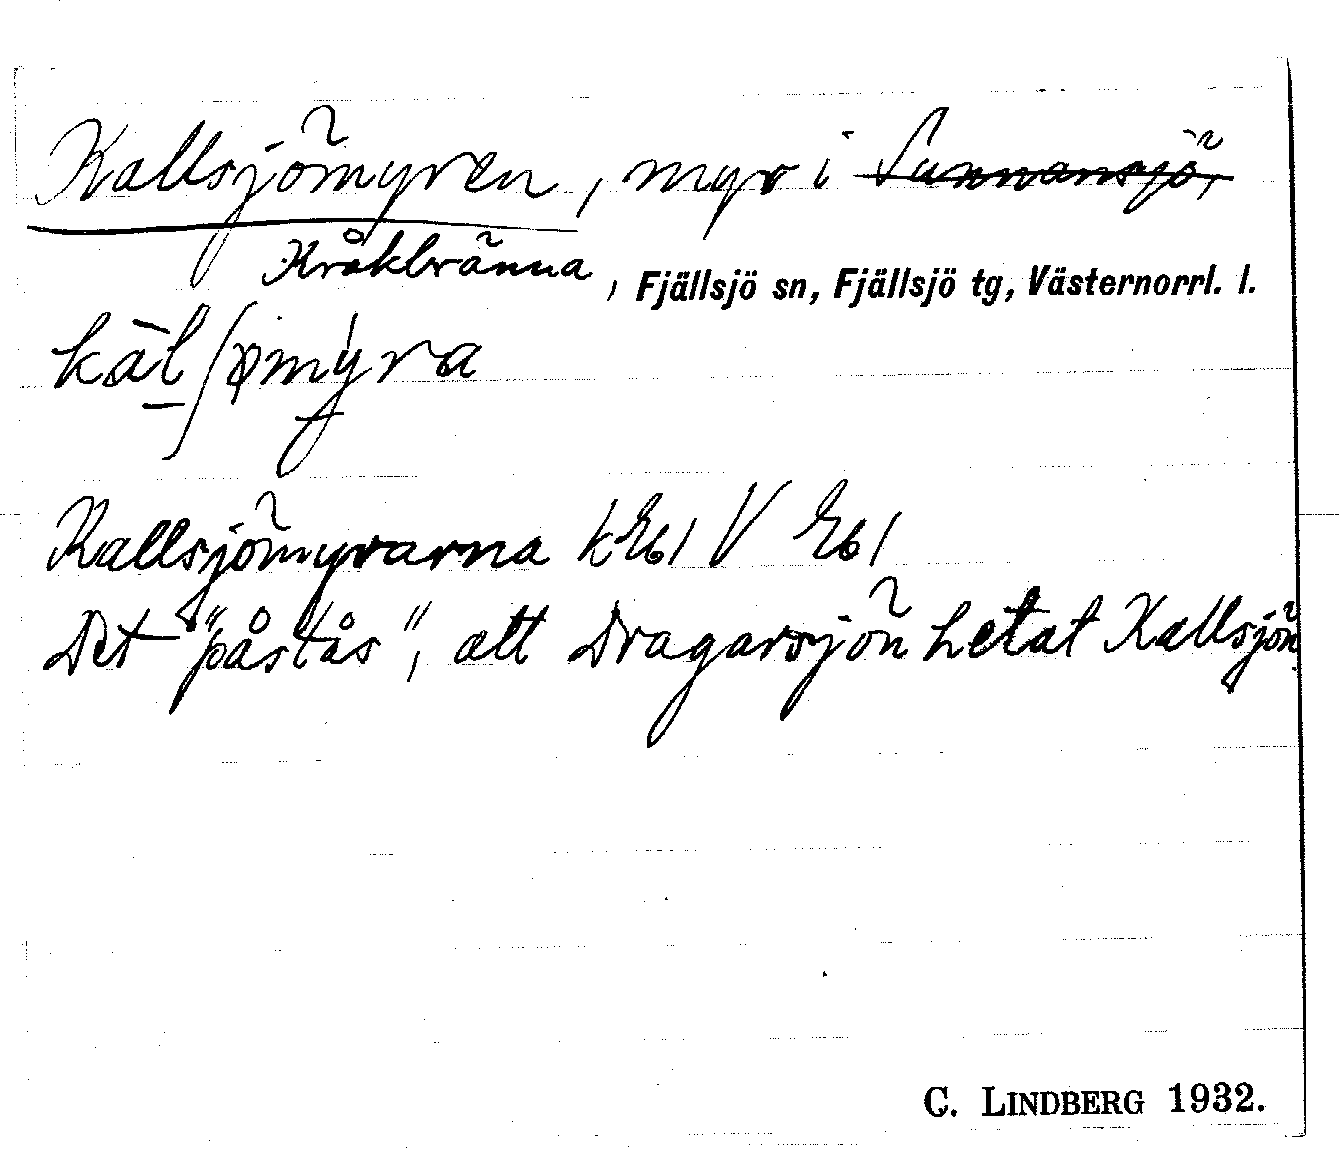 Kallsjömyren, myr i Sunnansjö,
Kråkbränna, Fjällsjö sn, Fjällsjö tg, Västernorrl. l.
kāl̲ʃømy̆ra
Kallsjömyrarna kEb1 V Eb1
Det "påstås", att Dragarsjön hetat Kallsjön
C. LINDBERG 1932.